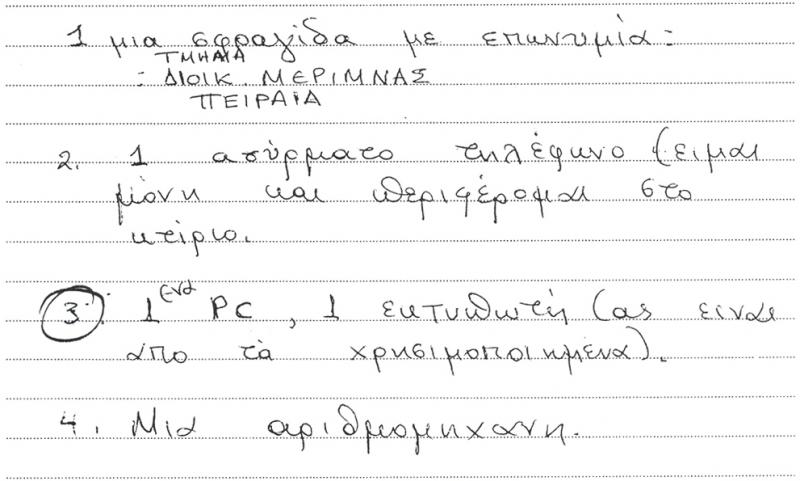 1 μια σφραγίδα με επωνυμία:
ΤΜΗΜΑ
: ΔΙΟΙΚ. ΜΕΡΙΜΝΑΣ
ΠΕΙΡΑΙΑ
2. 1 ασύρματο τηλέφωνο (ειμαι
μόνη και περιφέρομαι στο
κτίριο.
3. 1 ενα PC, 1 εκτυπωτή (ας ειναι
απο τα χρησιμοποιημένα).
4. Μια αριθμομηχανη.